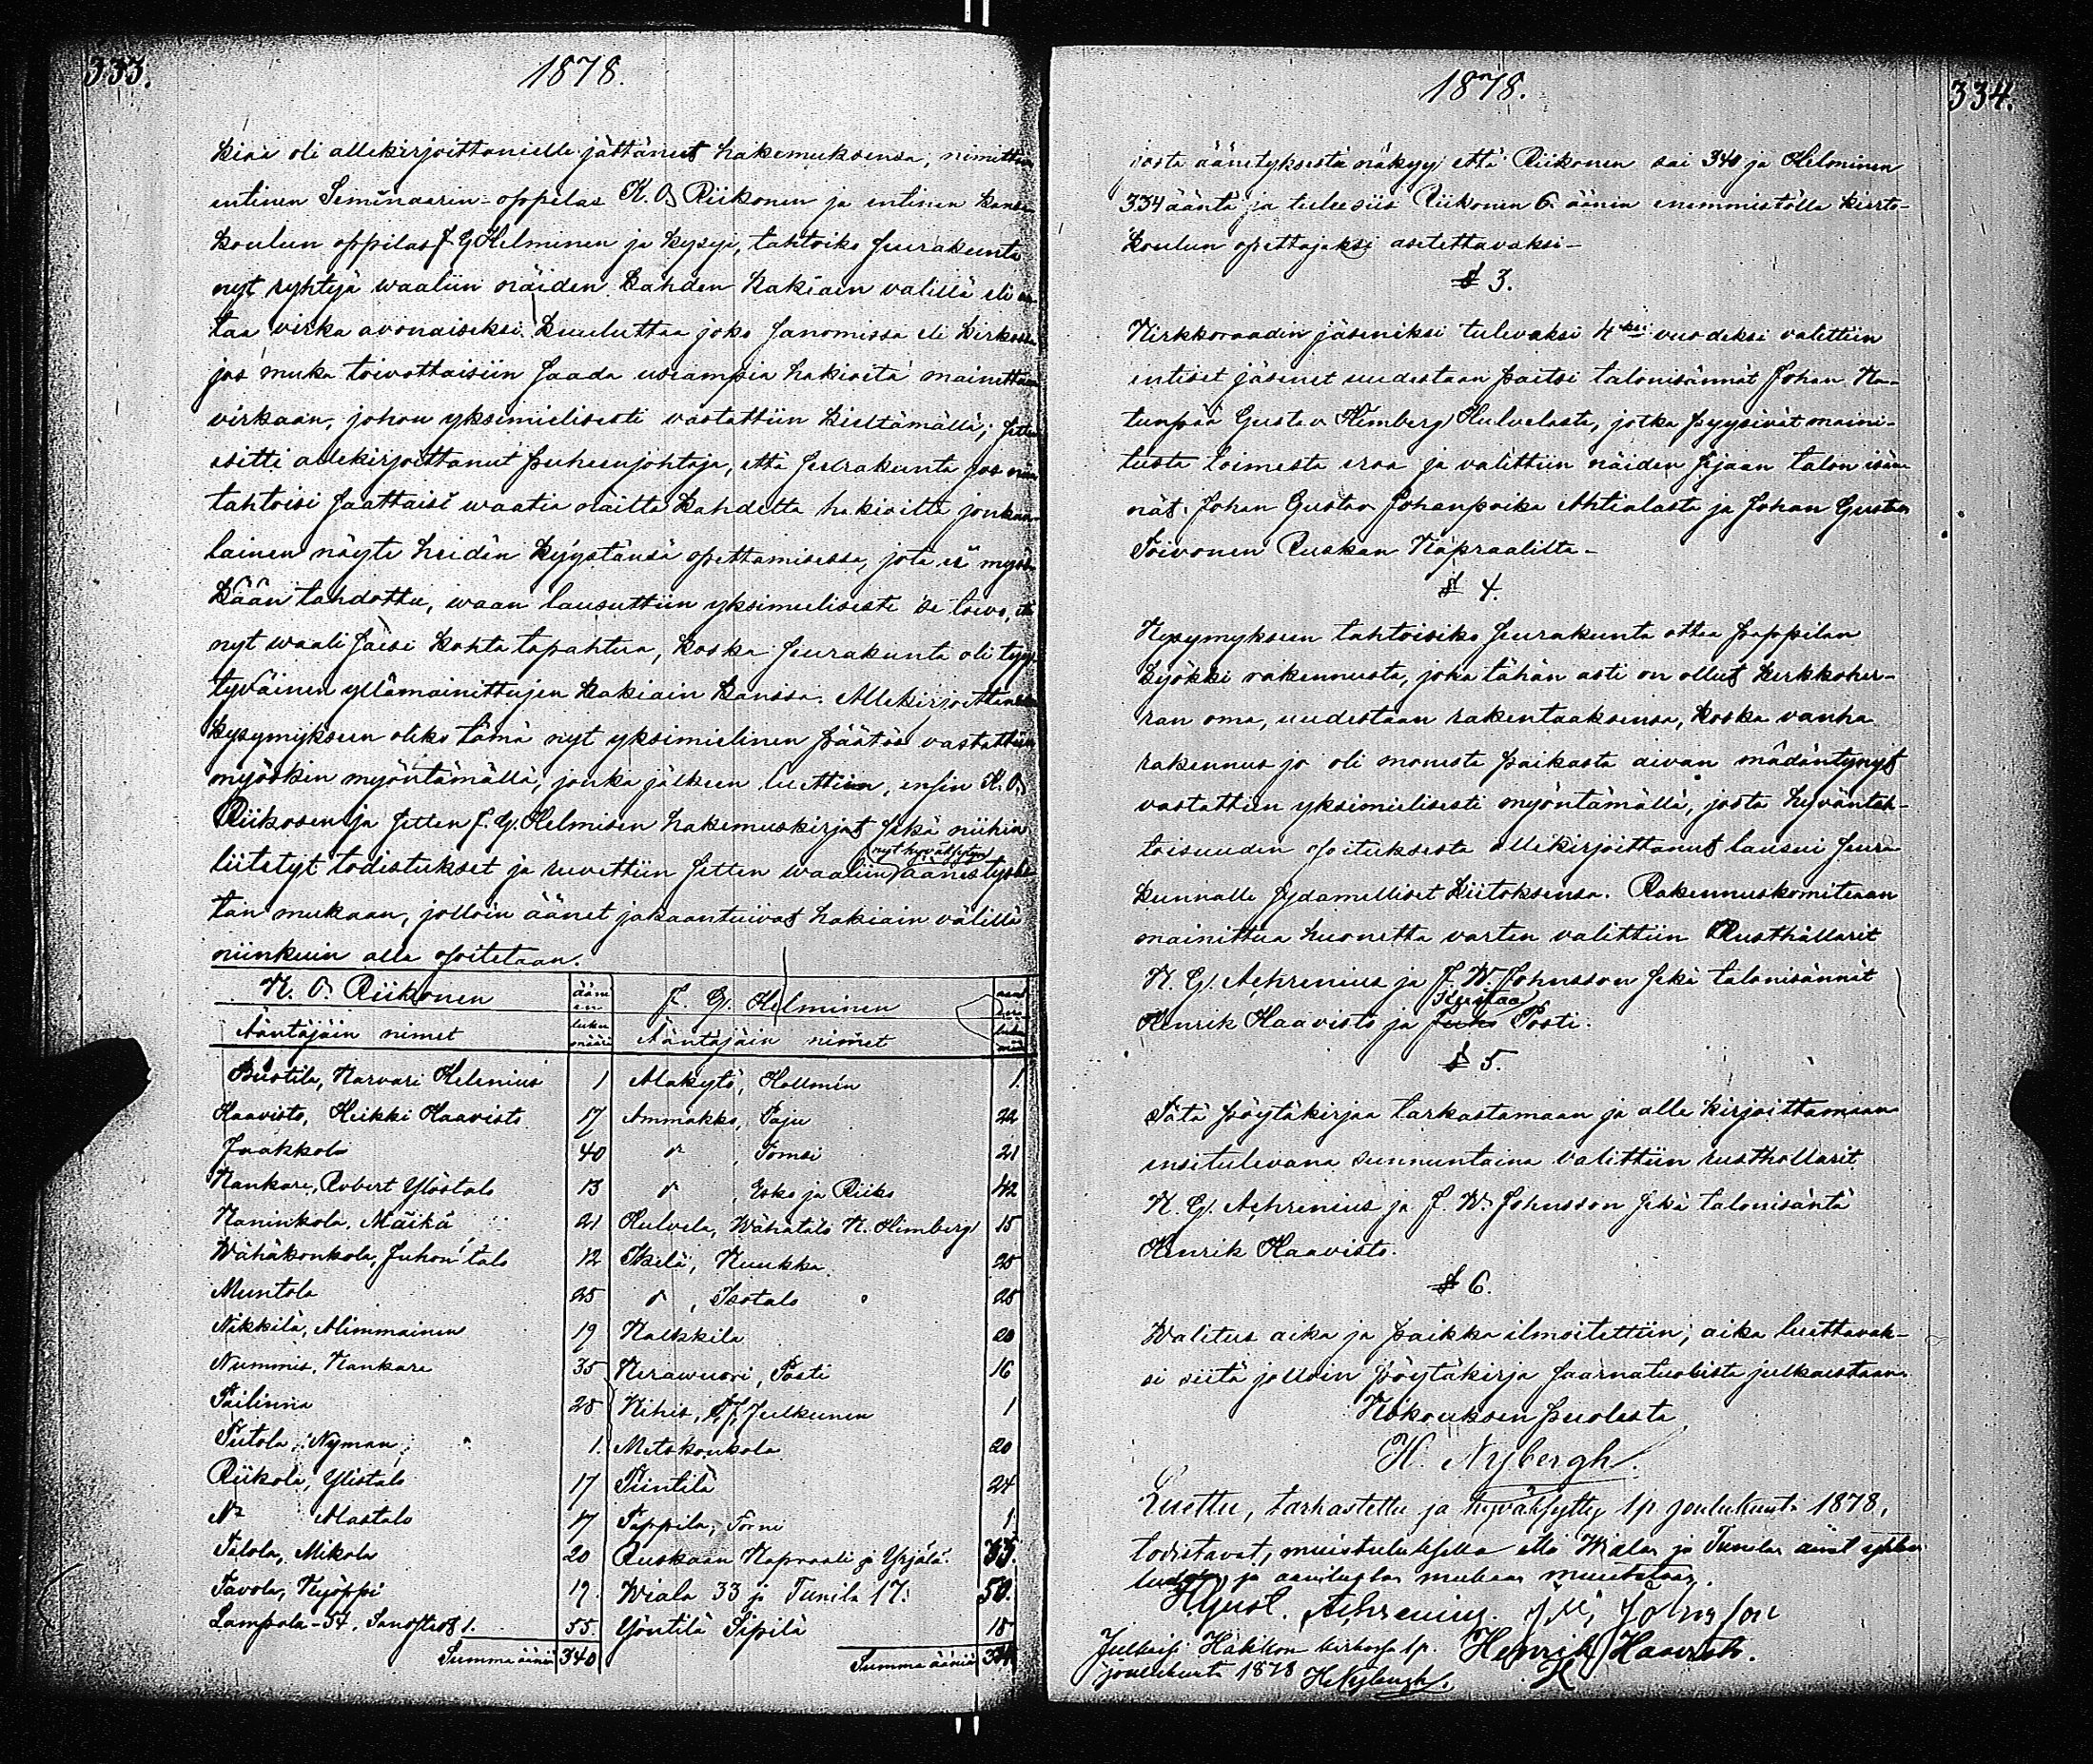 333.
1878.
kiaa oli allekirjoittaneelle jättänut hakemuksensa, nimittäin
entinen Seminaarin-oppilas K. O. Riikonen ja entinen kansa
koulun oppilas F. G. Helminen ja kysyi, tahtoiko seurakunta
nyt ryhtyä waaliin näiden kahden hakiain välillä eli an-
taa virka avonaiseksi kuuluttaa joko sanomissa eli kirkossa
jos muka toivottaisiin saada useampia hakioita mainittuun
virkaan, johon yksimielisesti vastattiin kieltämällä; sitte
esitti allekirjoittanut puheenjohtaja, että seurakunta jos niin
tahtoisi saattaisi waatia näiltä kahdelta hakioilta jonkun-
lainen näyte heidän kyystänsä opettamisessa, jota ei myös-
kään tahdottu, waan lausuttiin yksimielisesti se toivo, että
nyt waali saisi kohta tapahtua, koska seurakunta oli tyy-
tyväinen yllämainittujen hakiain kanssa. Allekirjoittaneen
kysymykseen oliko tämä nyt yksimielinen päätös vastattiin
myöskin myöntämällä, jonka jälkeen luettiin, ensin K. O.
Riikosen ja sitten F. G. Helmisen hakemuskirjat sekä niihin
liitetyt todistukset ja ruvettiin sitten waaliin nyt hyväksytyn äänestysluet-
tan mukaan, jolloin äänet jakaantuivat hakiain välillä
niinkuin alla osoitetaan.
K. O. Riikonen ääni en luku määrä F. G. Helminen
Ääntäjäin nimet Ääntäjäin nimet
Bustila, Karvari Helenius 1 Alakytö, Hollmén 1.
Haavisto, Heikki Haavisto 17 Ammakko, Paju 22
Jaakkola 40 " , Tomsi 21
Kankare, Robert Ylöstalo 13 " , Esko ja Riiko 42
Kaninkola, Mäikä 21 Hulvela, Wähätalo K. Himberg 15
Wähäkonkola, Juhon talo 12 Ikelä, Kuukka 25
Muntola 25 " , Isotalo 25
Nikkilä, Alimmainen 19 Kaukkila 20
Nummis, Kankare 35 Kerawuori, Posti 16
Pailinna 25 Kihis, Julkunen 1
Putola, Nyman 1. Metskonkola 20
Riikola, Ylistalo 17 Piintilä 24
Alastalo 17 Pappila, Torni 1
Talola, Mikola 20 Ruskaan Kapraali ja Yrjälä 33.
Tavola, Kyöppi 19. Wiala 33 ja Tunila 17. 50.
Lampola-54. 1. 55. Yöntilä Sipilä 18
Summa ääniä 340 Summa ääniä 334
334.
1878.
josta äänetyksestä näkyy että Riikonen sai 340 ja Helminen
334 ääntä ja tulee siis Riikonen 6. äänen enemmistöllä kierto-
koulun opettajaksi asetettavaksi-
§ 3.
Kirkkoraadin jäseniksi tulevaksi 4ksi vuodeksi valittiin
entiset jäsenet uudestaan paitsi talonisännät Johan Ka-
tunpää Gustav Himberg Hulvelasta, jotka pyysivät maini-
tusta toimesta eroa ja valittiin näiden sijaan talon isän-
nät Johan Gustav Johanpoika Ahtialasta ja Johan Gustav
Toivonen Ruskan Kapraalilta-
§ 4.
Kysymykseen tahtoisiko seurakunta ottaa pappilan
kyökki rakennusta, joka tähän asti on ollut kirkkoher-
ran oma, uudestaan rakentaaksensa, koska vanha
rakennus jo oli monesta paikasta aivan mädäntynyt
vastattiin yksimielisesti myöntämällä, josta hyväntah-
toisuuden osoituksesta allekirjoittanut lausui seura-
kunnalle sydämelliset kiitoksensa. Rakennuskomiteaan
mainittua huonetta varten valittiin Rusthållarit
K. G. Aehrenius ja J. W. Johnsson sekä talonisännät
Henrik Haavisto ja Juho Kustaa Posti.
§ 5.
Tätä pöytäkirjaa tarkastamaan ja alle kirjoittamaan
ensitulevana sunnuntaina valittiin rusthollarit
K. G. Aehrenius ja J. W. Johnsson sekä talonisäntä
Henrik Haavisto.
§ 6.
Walitus aika ja paikka ilmoitettiin; aika luettavak-
si siitä jolloin pöytäkirja saarnatuolista julkaistaan.
Kokouksen puolesta
H. Nybergh.
Luettu, tarkastettu ja hyväksytty 1 p. joulukuuta 1878,
todistavat, muistutuksella että Wialan ja Tunilan äänet
ja mukaan muutetaan.
K. Gust. Aehrenius. J. W. Johnsson
Julkaisi Hakkon kirkossa 1 p. Henrik Haavisto.
joulukuuta 1878 H. Nybergh.